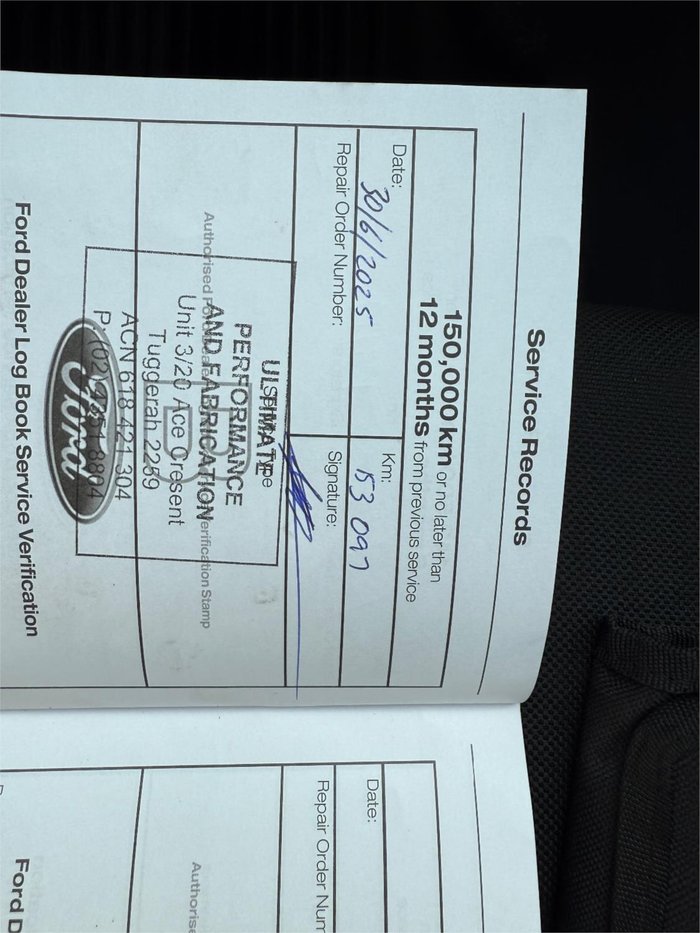 Service Records
150,000 km or no later than
12 months from previous service
Date: 30/6/2025
Km: 153 097
Repair Order Number:
Signature:
ULTIMATE
PERFORMANCE
AND FABRICATION
Unit 3/20 Ace Cresent
Tuggerah 2259
ACN 618 421 304
Authorised Verification Stamp
Ford
Ford Dealer Log Book Service Verification
Date:
Repair Order Num
Authorise
Ford D